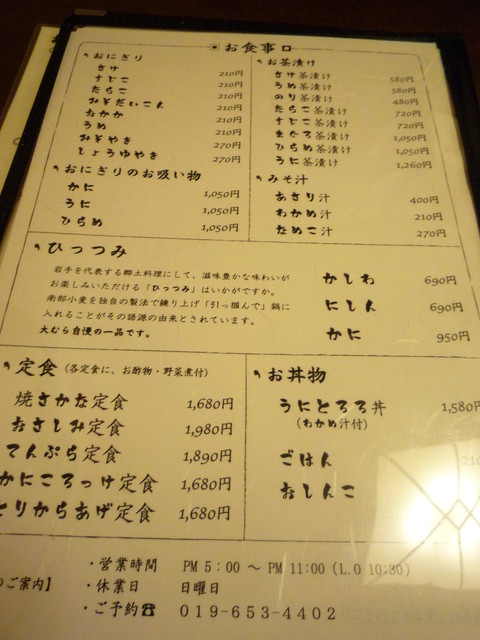 お食事口
おにぎり
さけ 210円
すじこ 210円
たらこ 210円
みそだいこん 210円
おかか 210円
うめ 210円
みそやき 270円
しょうゆやき 270円
おにぎりのお吸い物
かに 1,050円
うに 1,050円
ひらめ 1,050円
お茶漬け
さけ茶漬け 580円
うめ茶漬け 580円
のり茶漬け 480円
たらこ茶漬け 720円
すじこ茶漬け 720円
まぐろ茶漬け 1,050円
ひらめ茶漬け 1,050円
うに茶漬け 1,260円
みそ汁
あさり汁 400円
わかめ汁 210円
なめこ汁 270円
ひっつみ
岩手を代表する郷土料理にして、滋味豊かな味わいが
お楽しみいただける「ひっつみ」はいかがですか。
南部小麦を独自の製法で練り上げ「引っ掴んで」鍋に
入れることがその語源の由来とされています。
大むら自慢の一品です。
かしわ 690円
にしん 690円
かに 950円
定食（各定食に、お酢物・野菜煮付）
焼さかな定食 1,680円
おさしみ定食 1,980円
てんぷら定食 1,890円
かにころっけ定食 1,680円
とりからあげ定食 1,680円
お丼物
うにとろろ丼 1,580円
（わかめ汁付）
ごはん 210
おしんこ
ご案内】
・営業時間 PM 5：00 ～ PM 11:00 (L.O 10:30)
・休業日 日曜日
・ご予約☎ 019-653-4402